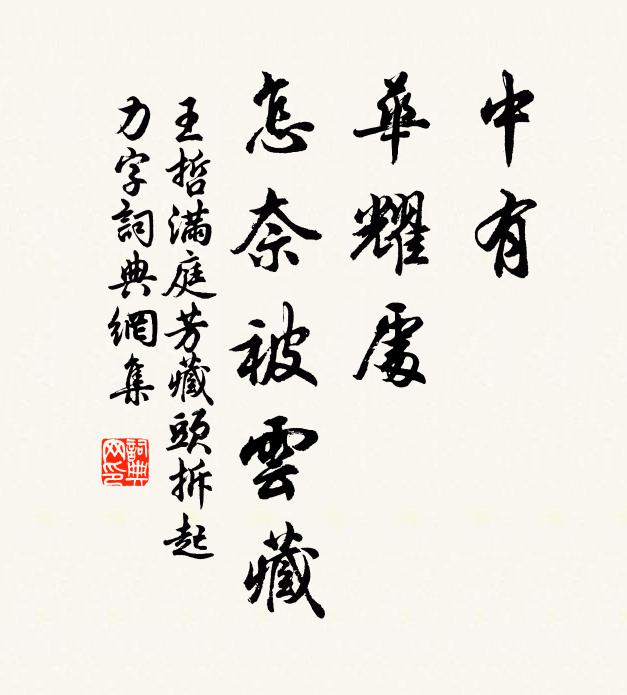 中有
華耀處
怎奈被雲藏
王哲滿庭芳藏頭拆起
力字詞典網集
詞典網印